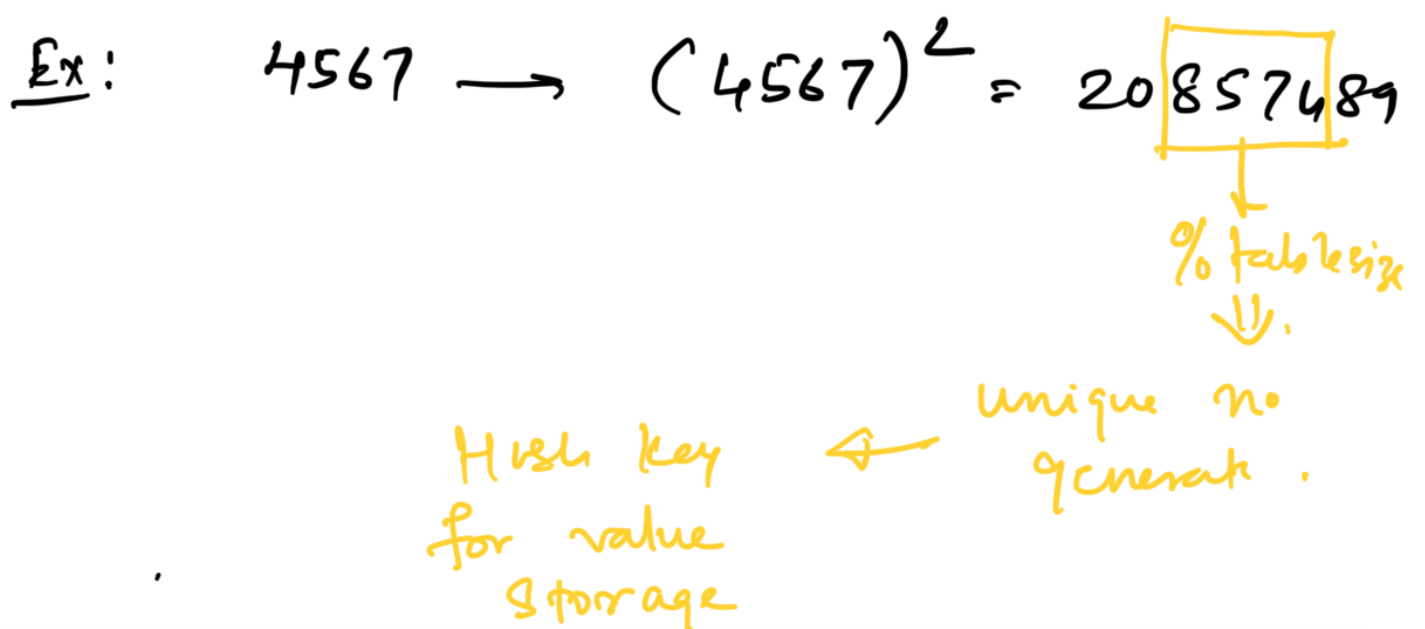 Ex: 4567 → (4567)² = 20857489
% tablesize
⇓.
unique no
generate.
← 
Hash key
for value
storage